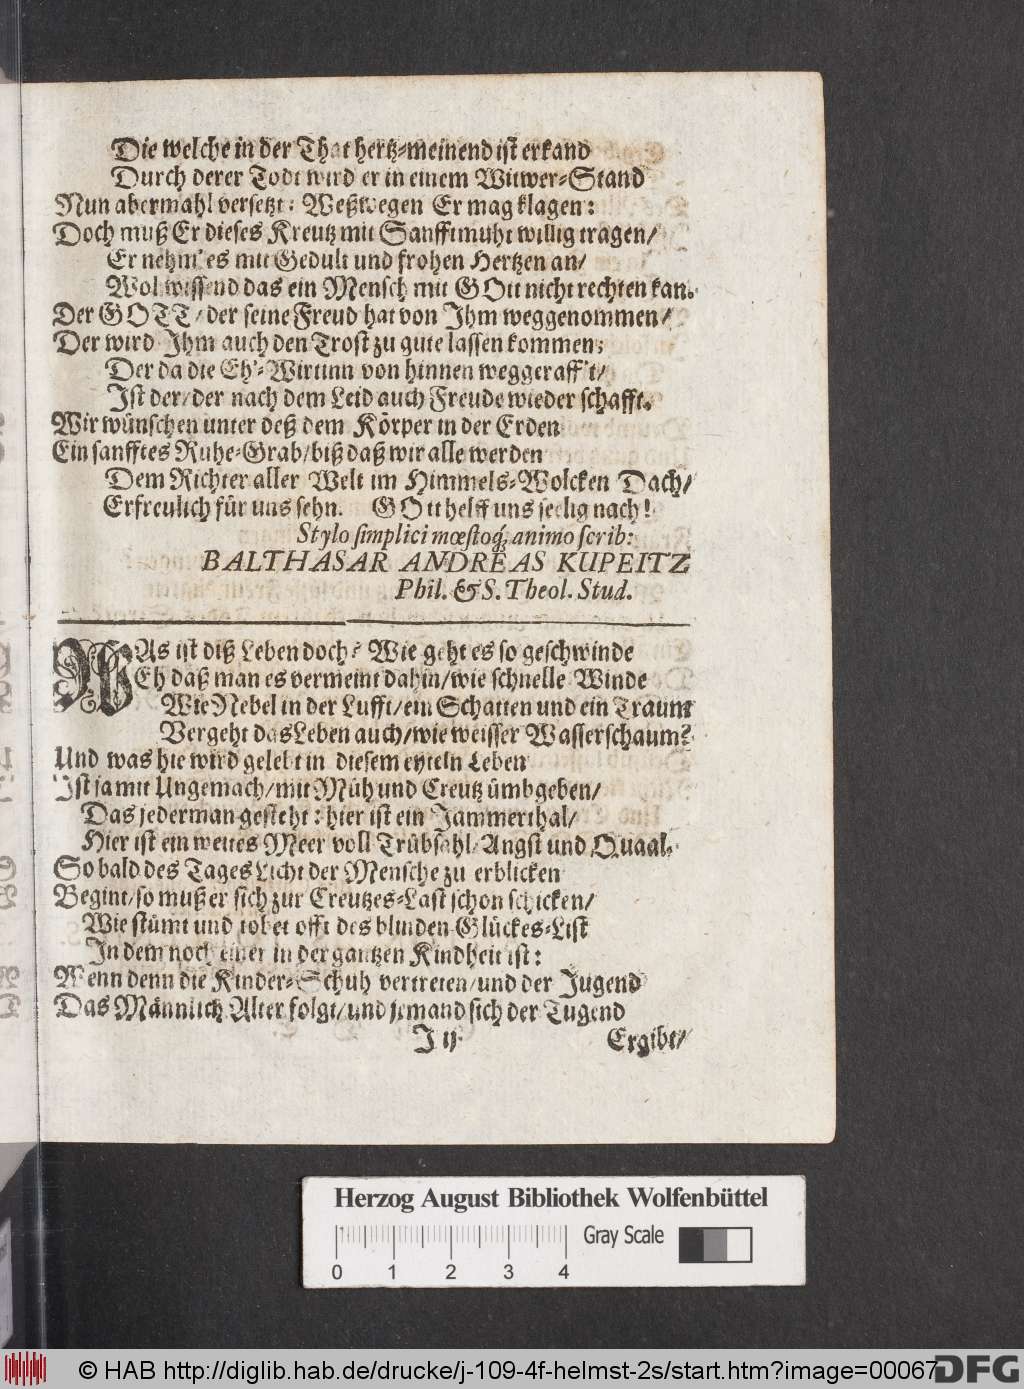 Die welche in der That hertz-meinend ist erkand
Durch derer Todt wird er in einem Witwer-Stand
Nun abermahl versetzt: Weßwegen Er mag klagen:
Doch muß Er dieses Kreutz mit Sanfftmuht willig tragen/
Er nehm' es mit Gedult und frohen Hertzen an/
Wol wissend das ein Mensch mit GOtt nicht rechten kan.
Der GOTT/ der seine Freud hat von Ihm weggenommen/
Der wird Ihm auch den Trost zu gute lassen kommen;
Der da die Eh'-Wirtinn von hinnen weggerafft/
Ist der/ der nach dem Leid auch Freude wieder schafft.
Wir wünschen unter deß dem Körper in der Erden
Ein sanfftes Ruhe-Grab/ biß daß wir alle werden
Dem Richter aller Welt im Himmels-Wolcken Dach/
Erfreulich für uns sehn. GOtt helff uns seelig nach!
Stylo simplici mœstoq́; animo scrib:
BALTHASAR ANDREAS KUPEITZ
Phil. & S. Theol. Stud.
WAs ist diß Leben doch? Wie geht es so geschwinde
Eh daß man es vermeint dahin/ wie schnelle Winde
Wie Nebel in der Lufft/ ein Schatten und ein Traum
Vergeht das Leben auch/ wie weisser Wasserschaum?
Und was hie wird gelebt in diesem eyteln Leben
Ist ja mit Ungemach/ mit Müh und Creutz ümbgeben/
Das jederman gesteht: hier ist ein Jammerthal/
Hier ist ein weites Meer voll Trübsahl/ Angst und Quaal.
So bald des Tages Licht der Mensche zu erblicken
Begint/ so muß er sich zur Creutzes-Last schon schicken/
Wie stümt und tobet offt des blinden Glückes-List
In dem noch einer in der gantzen Kindheit ist:
Wenn denn die Kinder-Schuh vertreten/ und der Jugend
Das Männlich Alter folgt/ und jemand sich der Tugend
J ij
Ergibt/
Herzog August Bibliothek Wolfenbüttel
Gray Scale
0 1 2 3 4
© HAB http://diglib.hab.de/drucke/j-109-4f-helmst-2s/start.htm?image=00067
DFG